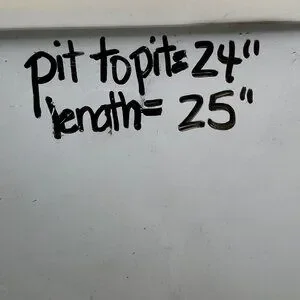 pit to pit= 24"
length= 25"